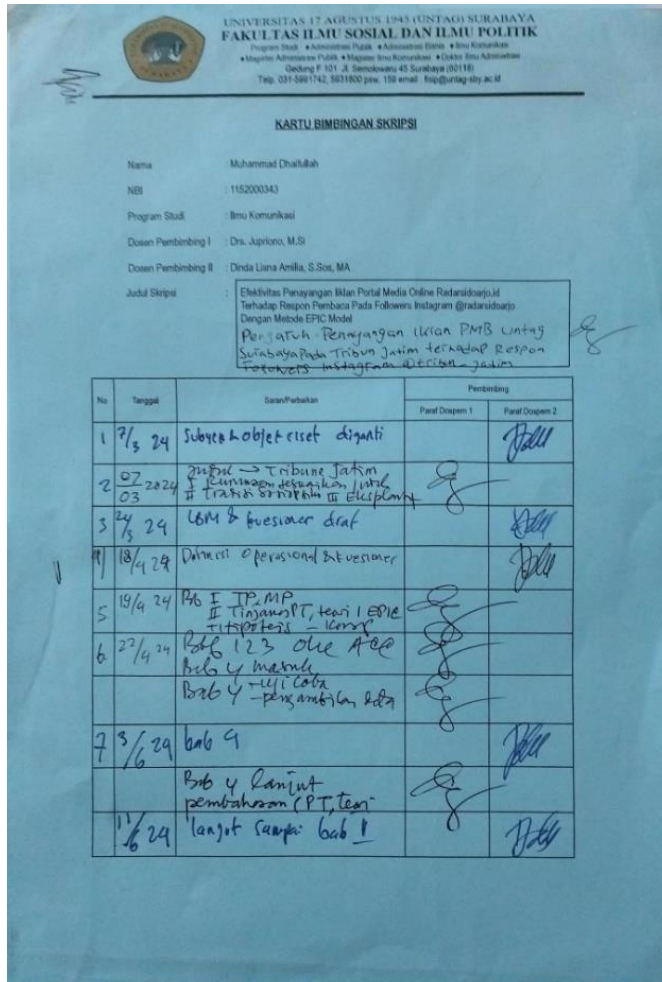 UNIVERSITAS 17 AGUSTUS 1945 (UNTAG) SURABAYA
FAKULTAS ILMU SOSIAL DAN ILMU POLITIK
Program Studi : • Administrasi Publik • Administrasi Bisnis • Ilmu Komunikasi
• Magister Administrasi Publik • Magister Ilmu Komunikasi • Doktor Ilmu Administrasi
Gedung F 101 Jl. Semolowaru 45 Surabaya (60118)
Telp. 031-5991742, 5931800 psw. 159 email : fisip@untag-sby.ac.id
KARTU BIMBINGAN SKRIPSI
Nama : Muhammad Dhaifullah
NBI : 1152000343
Program Studi : Ilmu Komunikasi
Dosen Pembimbing I : Drs. Jupriono, M.Si
Dosen Pembimbing II : Dinda Lisna Amilia, S.Sos, MA
Judul Skripsi : Efektivitas Penayangan Iklan Portal Media Online Radarsidoarjo.id
Terhadap Respon Pembaca Pada Followers Instagram @radarsidoarjo
Dengan Metode EPIC Model
Pengaruh Penayangan Iklan PMB Untag
Surabaya Pada Tribun Jatim terhadap Respon
Followers Instagram @tribun_jatim
No Tanggal Saran/Perbaikan Pembimbing
Paraf Dospem 1 Paraf Dospem 2
1 7/3 24 Subyek & objek riset diganti
2 07/03 2024 Judul → Tribune Jatim
I Rumusan sesuaikan judul
II III Eksplanatif
3 24/3 24 LBM & kuesioner draf
4 18/4 24 Definisi Operasional & kuesioner
5 19/4 24 Bb I TP, MP
II Tinjauan PT, teori EPIC
6 22/4 24 Bab 1 2 3 oke ACC
Bab 4 masuk
Bab 4 - uji coba
- pengambilan data
7 3/6 24 bab 4
Bab 4 lanjut
pembahasan (PT, teori
11/6 24 lanjut sampai bab